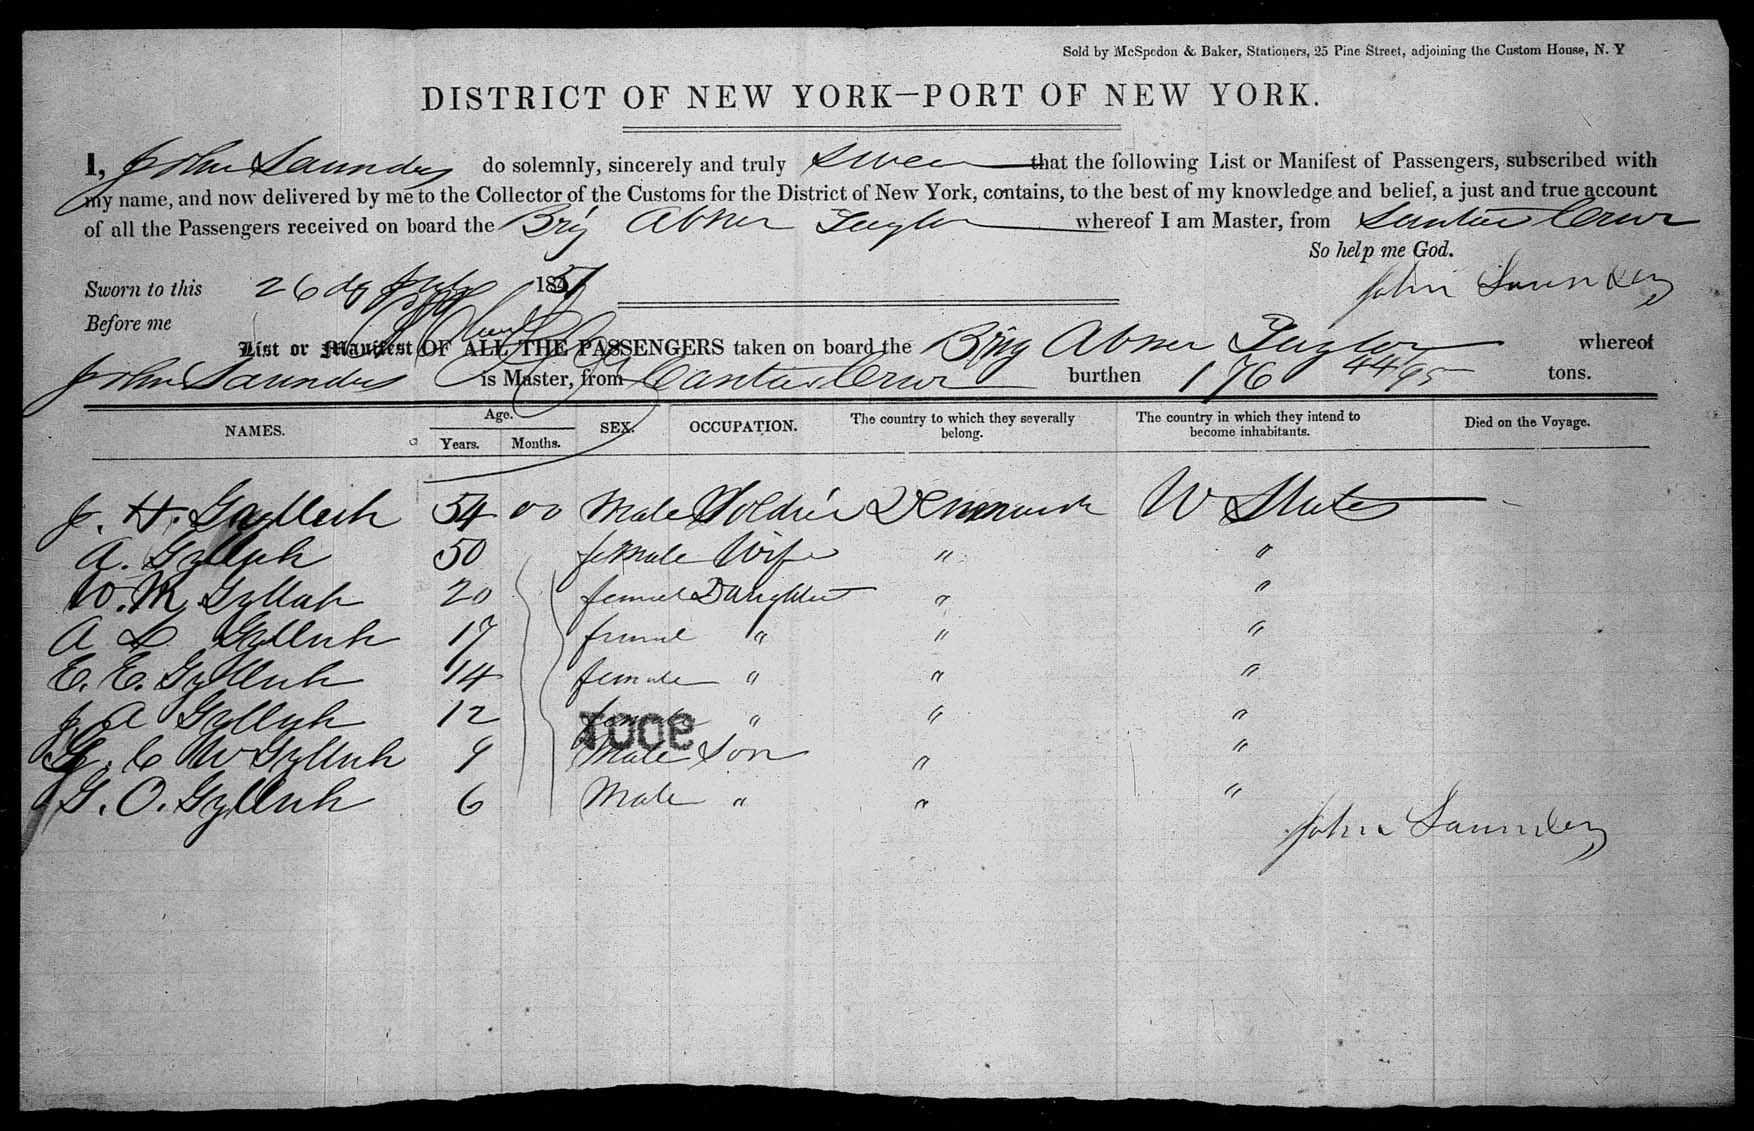 Sold by McSpedon & Baker, Stationers, 25 Pine Street, adjoining the Custom House, N. Y
DISTRICT OF NEW YORK—PORT OF NEW YORK.
I, John Saunders do solemnly, sincerely and truly swear that the following List or Manifest of Passengers, subscribed with
my name, and now delivered by me to the Collector of the Customs for the District of New York, contains, to the best of my knowledge and belief, a just and true account
of all the Passengers received on board the Brig Abner Taylor whereof I am Master, from Santa Cruz
So help me God.
Sworn to this 26 1851 John Saunders
Before me
List or Manifest OF ALL THE PASSENGERS taken on board the Brig Abner Taylor whereof
John Saunders is Master, from Santa Cruz burthen 176 44/95 tons.
NAMES. Age. Years. Months. SEX. OCCUPATION. The country to which they severally belong. The country in which they intend to become inhabitants. Died on the Voyage.
J. H. Gyllich 54 00 Male Soldier Denmark States
A. Gyllich 50 female Wife " "
W. M. Gyllich 20 female Daughter " "
A L Gyllich 17 female " " "
E. E. Gyllich 14 female " " "
J A Gyllich 12 " " "
C W Gyllich 9 Male Son " "
G. O. Gyllich 6 Male " " "
John Saunders